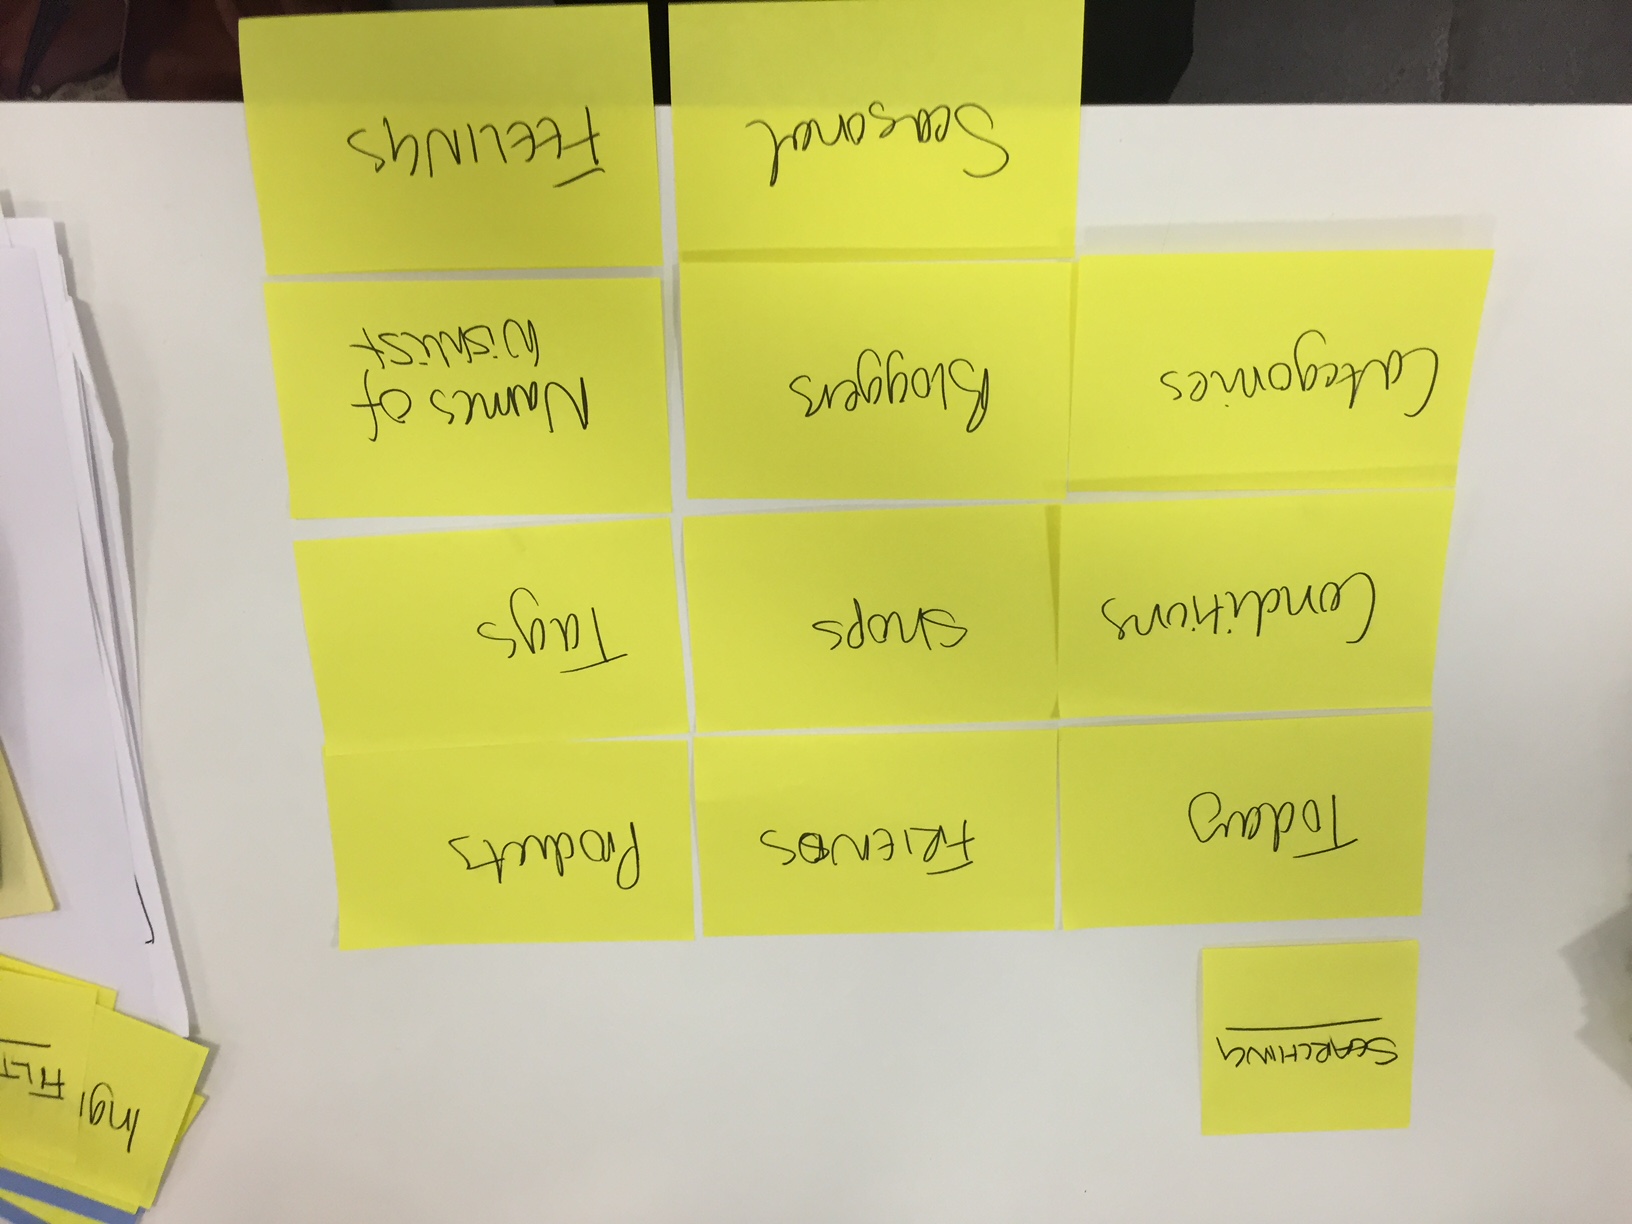 SEARCHING
Ing
FILT
Today
FRIENDS
Products
Conditions
Shops
Tags
Categories
Bloggers
Names of
Wishlist
Seasonal
FEELINGS